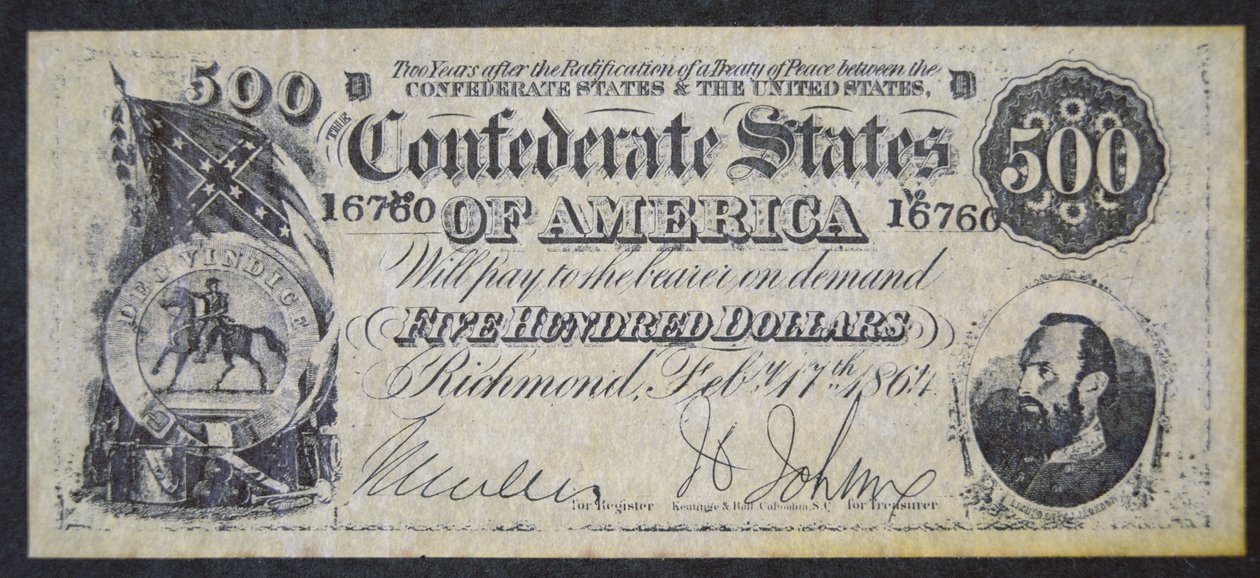 500
D
Two Years after the Ratification of a Treaty of Peace between the
CONFEDERATE STATES & THE UNITED STATES,
D
THE
Confederate States
500
16760
OF AMERICA
No 16760
DEO VINDICE
Will pay to the bearer on demand
FIVE HUNDRED DOLLARS
Richmond, Feby. 17th 1864
for Register
Keatinge & Ball Columbia, S.C.
for Treasurer